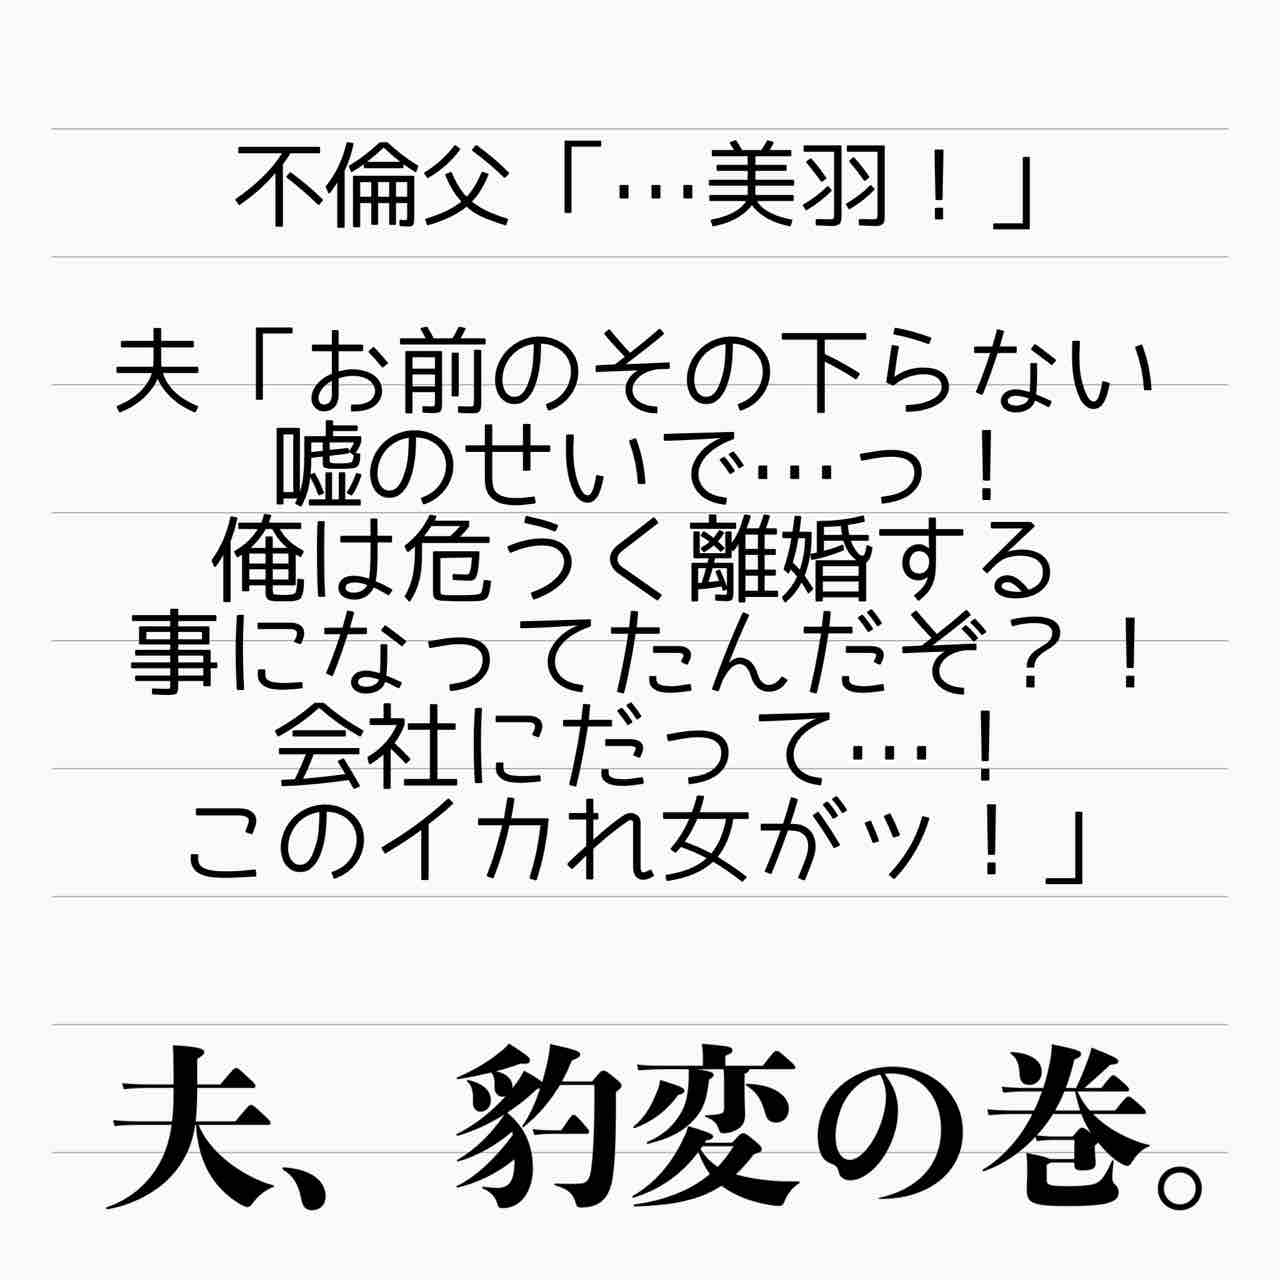 不倫父「…美羽！」
夫「お前のその下らない
嘘のせいで…っ！
俺は危うく離婚する
事になってたんだぞ？！
会社にだって…！
このイカれ女がッ！」
夫、豹変の巻。